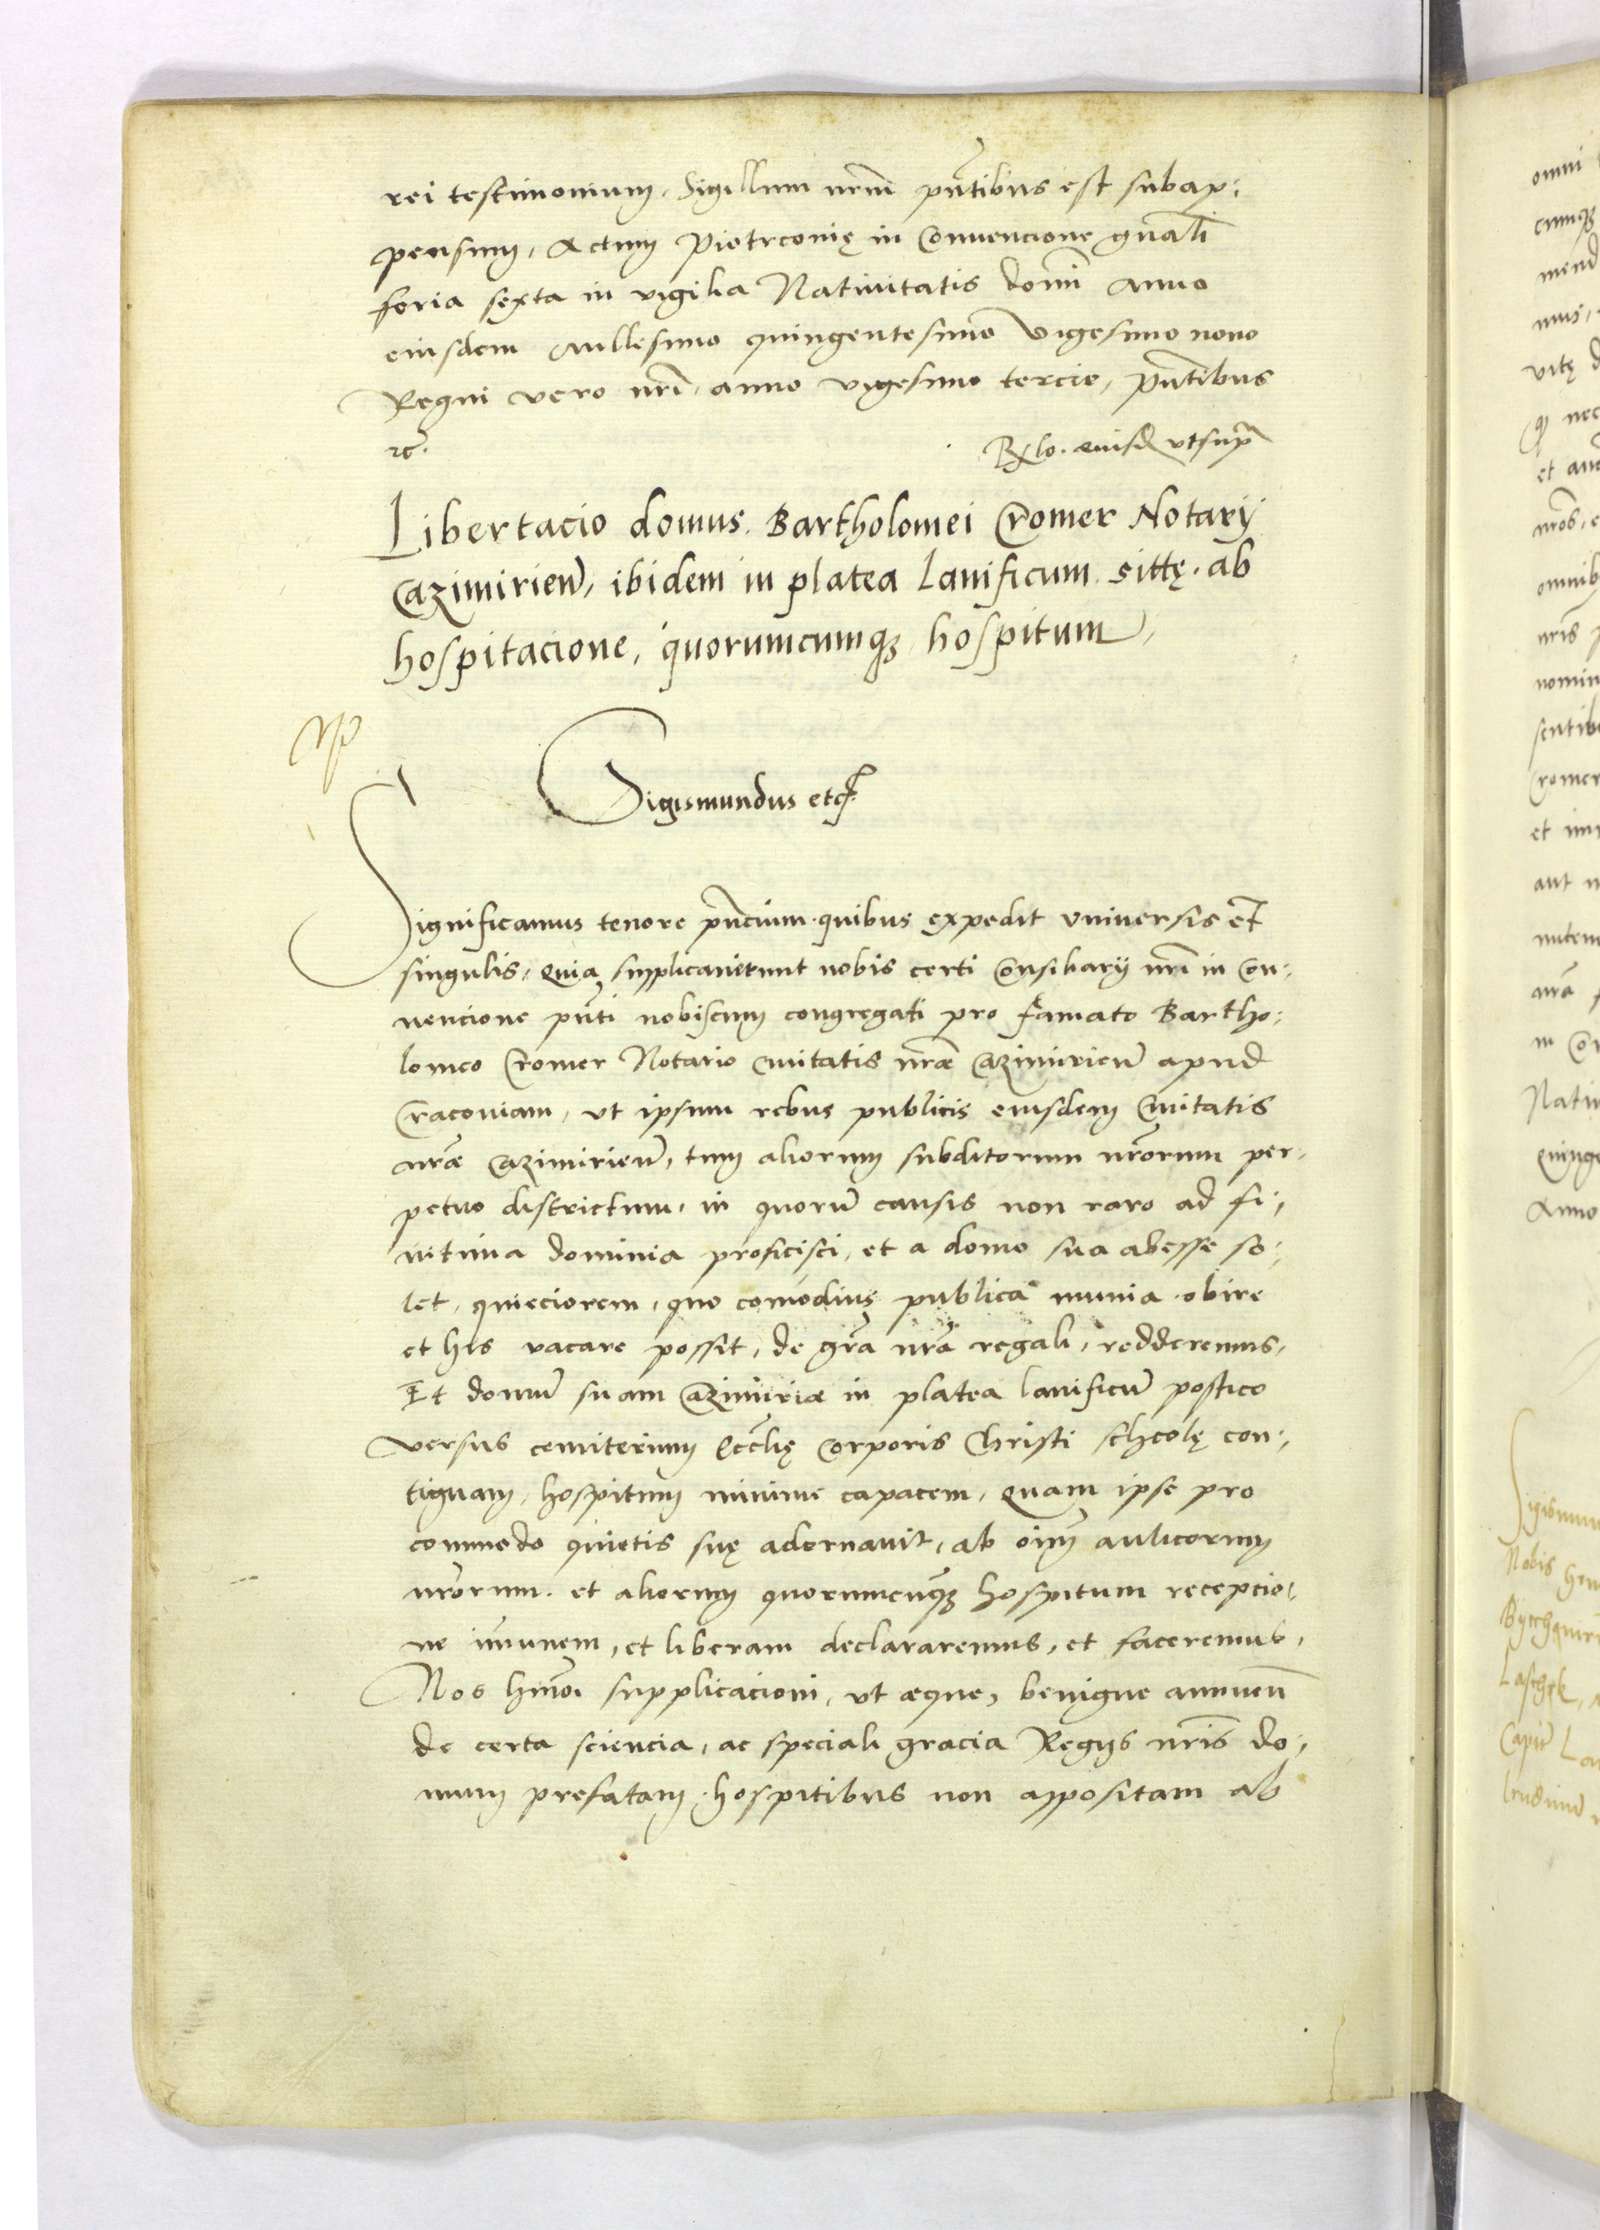 rei testimonium, Sigillum nrm̄ pn̄tibus est subap:
pensum, Actum Piotrconię in Convencione gn̄ali
feria sexta in vigilia Nativitatis domī Anno
eiusdem Millesimo quingentesimo Vigesimo nono
Regni vero nrī, anno vigesimo tercio, pn̄tibus
rc̄.
Rx̄lo. euisd̄ vtsupr̄
Libertacio domus. Bartholomei Cromer Notarij
Cazimirien̄, ibidem in platea lanificum. sittę. ab
hospitacione, quorumcumqȝ hospitum,
Sigismundus etc̄.
Significamus tenore pn̄cium. quibus expedit vniversis et
singulis, quia supplicaverunt nobis certi Consiliarij nrī in Con:
vencione pn̄ti nobiscum congregati pro famato Bartho:
lomeo Cromer Notario Civitatis nr̄æ Cazimirien̄ apud
Cracoviam, vt ipsum rebus publicis eiusdem Civitatis
nr̄æ Cazimirien̄, tum aliorum subditorum nrōrum per:
petuo districtum, in quorū causis non raro ad fi:
nitima dominia proficisci, et a domo sua abesse so:
let, quieciorem, quo comodius publica munia obire
et his vacare possit, de gr̄a nr̄a regali, redderemus,
Et domū suam Cazimiriæ in platea lanificū postico
versus cemiterium Eccl̄ię Corporis Christi scholę con:
tiguam, hospitum minime capacem, quam ipse pro
commodo quietis suę adornavit, ab oīm aulicorum
nrōrum. et aliorum quorumcūqȝ hospitum recepcio:
ne īmunem, et liberam declararemus, et faceremus,
Nos hmōi supplicacioni, vt æque, benigne annuen̄
de certa sciencia, ac speciali gracia Regijs nrīs do:
mum prefatam. hospitibus non appositam ab